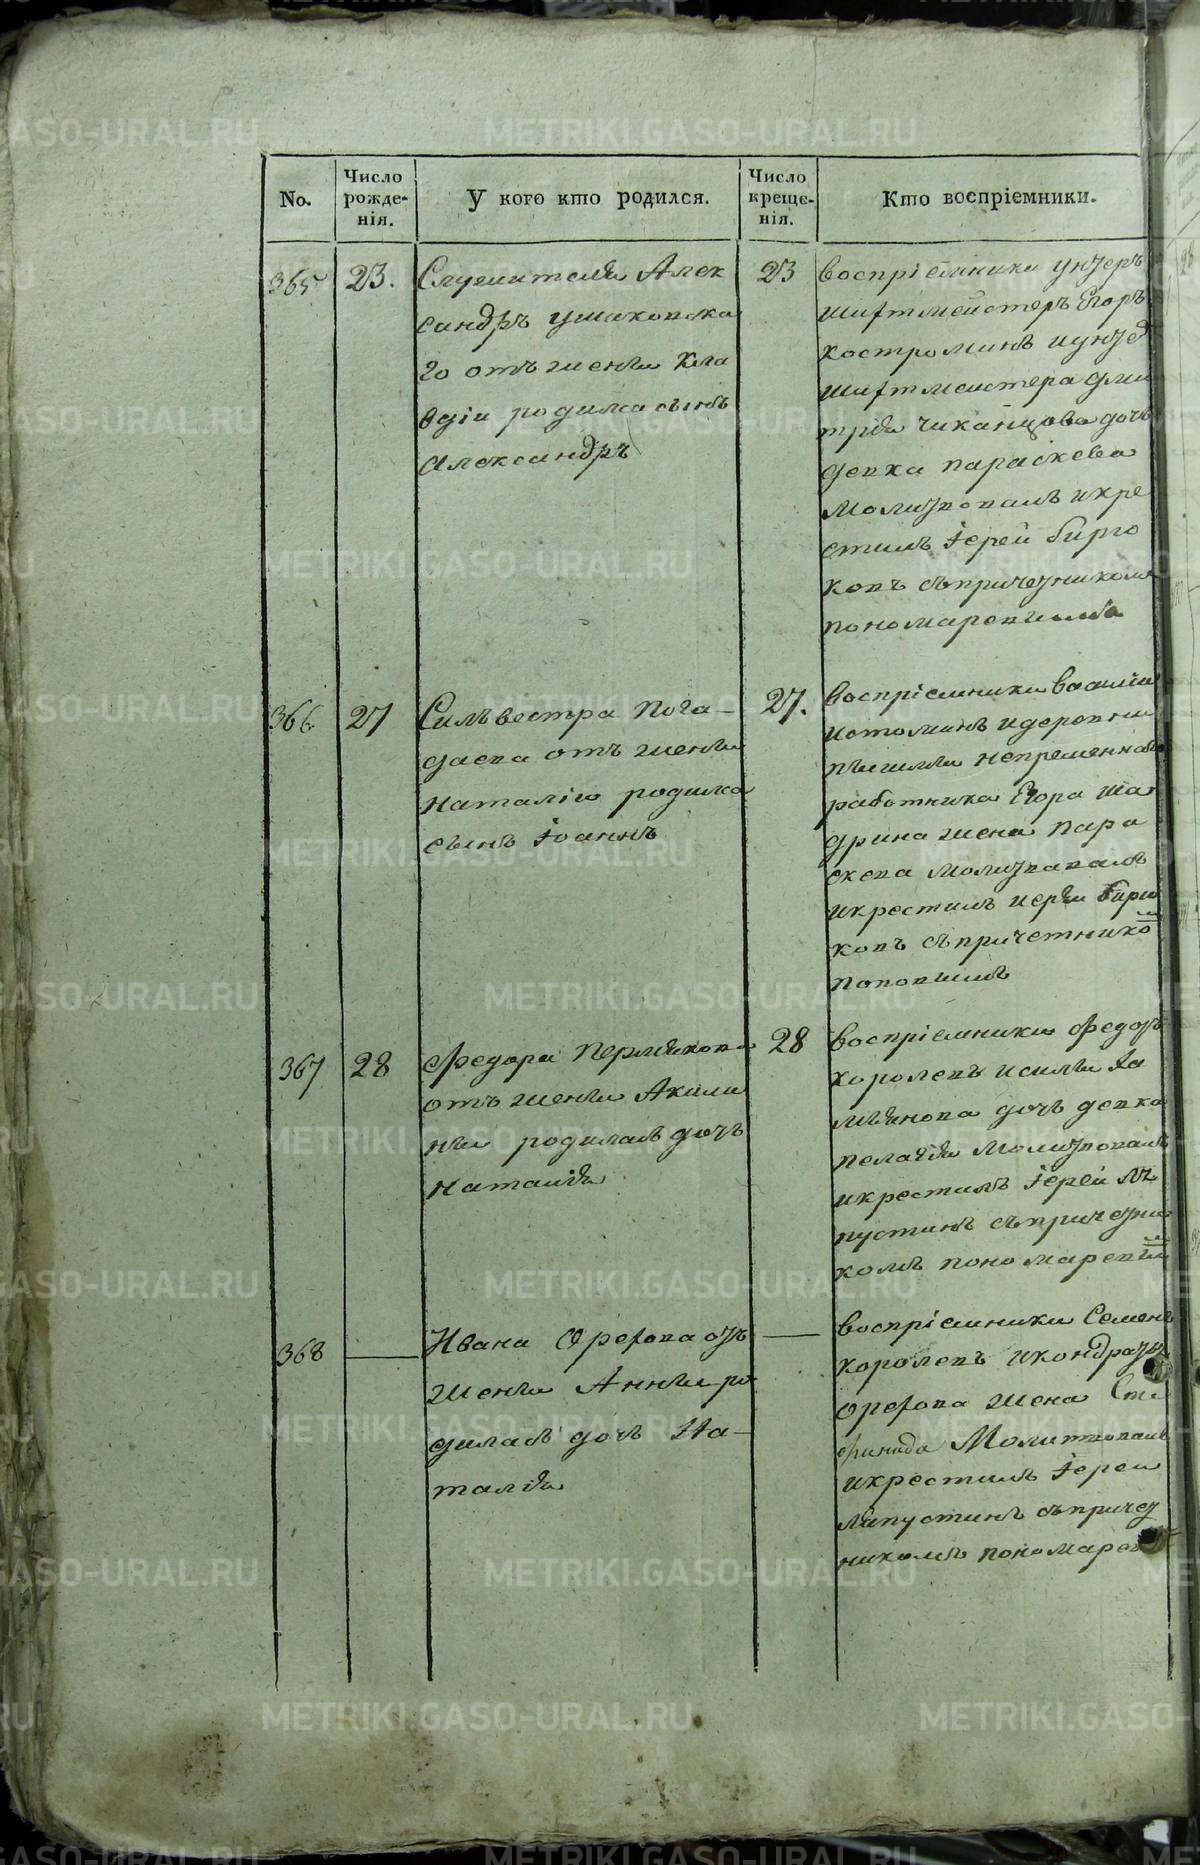 No.
Число рожде-нія.
У кого кто родился.
Число креще-нія.
Кто воспріемники.
365
23.
Служителя Алек
сандръ ушаковска
го отъ жены Кла
вдіи родился сынъ
Александръ
23
воспріемники унтеръ
шихтмейстеръ Егоръ
костроминъ иунтер
шихтмейстера дми
трія чиканцова дочь
девка параскева
молитвовалъ икре
стилъ Іерей бирю
ковъ съпричетникомъ
пономаревымъ
366
27
Сильвестра пога-
даева отъ жены
наталіи родился
сынъ Іоаннъ
27.
воспріемники василій
истоминъ идеревни
пышмы непременнаго
работника Егора Ша
дрина жена пара
скева молитвовалъ
икрестилъ иерей бирю
ковъ съпричетнико
поповымъ
367
28
Федора пермякова
отъ жены Акили
ны родилась дочь
наталія
28
воспріемники Федоръ
королевъ исилы
мянова дочь девка
пелагія молитвовалъ
икрестилъ Іерей ля
пустинъ съпричетни
комъ пономаревым
368
Ивана Орехова отъ
жены Анны ро
дилась дочь На-
талія
воспріемники Семенъ
королевъ икондратья
Орехова жена
Молитвовалъ
икрестилъ Іереи
ляпустинъ съпричет
никомъ пономарев
METRIKI.GASO-URAL.RU